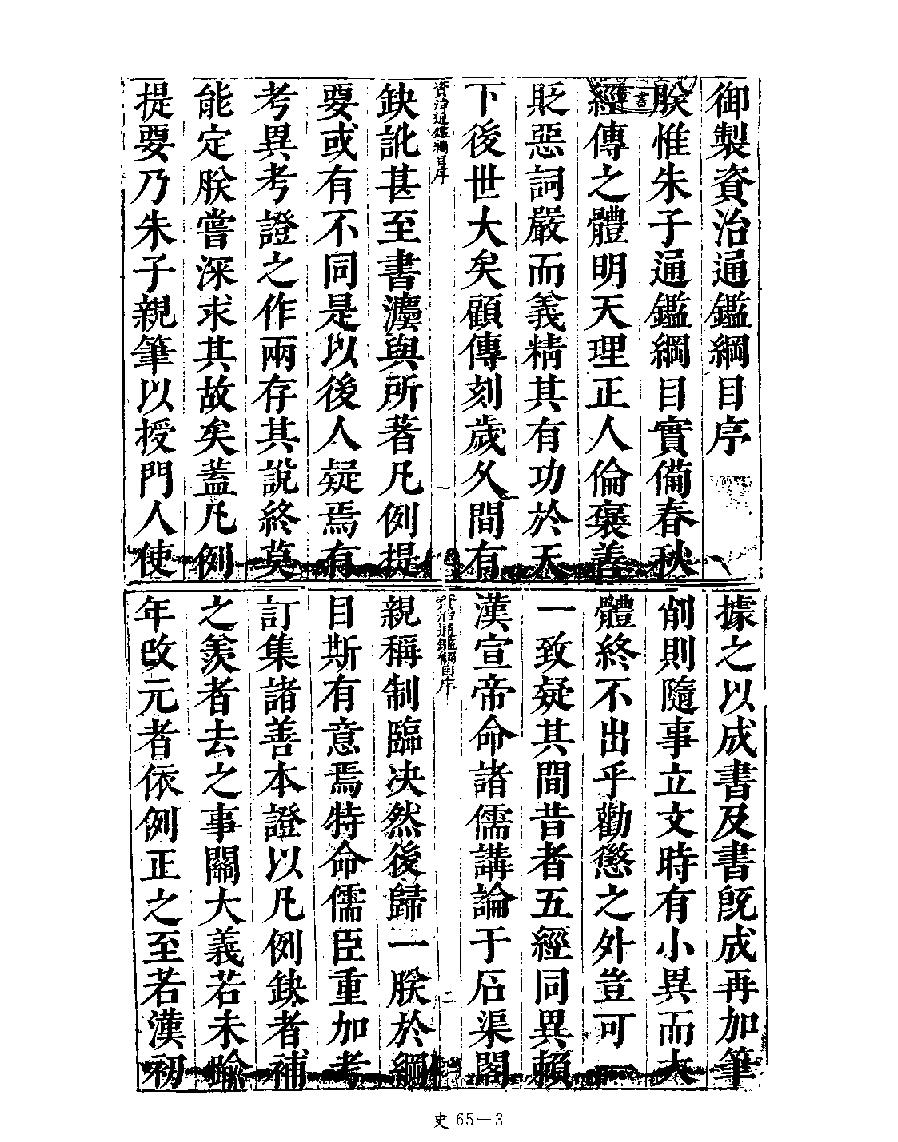 御製資治通鑑綱目序
朕惟朱子通鑑綱目實備春秋
經傳之體明天理正人倫褒善
貶惡詞嚴而義精其有功於天
下後世大矣顧傳刻歲久間有
資治通鑑綱目序
一
缺訛甚至書灋與所著凡例提
要或有不同是以後人疑焉有
考異考證之作兩存其說終莫
能定朕嘗深求其故矣蓋凡例
提要乃朱子親筆以授門人使
據之以成書及書既成再加筆
削則隨事立文時有小異而大
體終不出乎勸懲之外豈可一
一致疑其間昔者五經同異賴
漢宣帝命諸儒講論于石渠閣
資治通鑑綱目序
二
親稱制臨决然後歸一朕於綱
目斯有意焉特命儒臣重加考
訂集諸善本證以凡例缺者補
之羨者去之事關大義若未踰
年改元者依例正之至若漢初
史 65—3